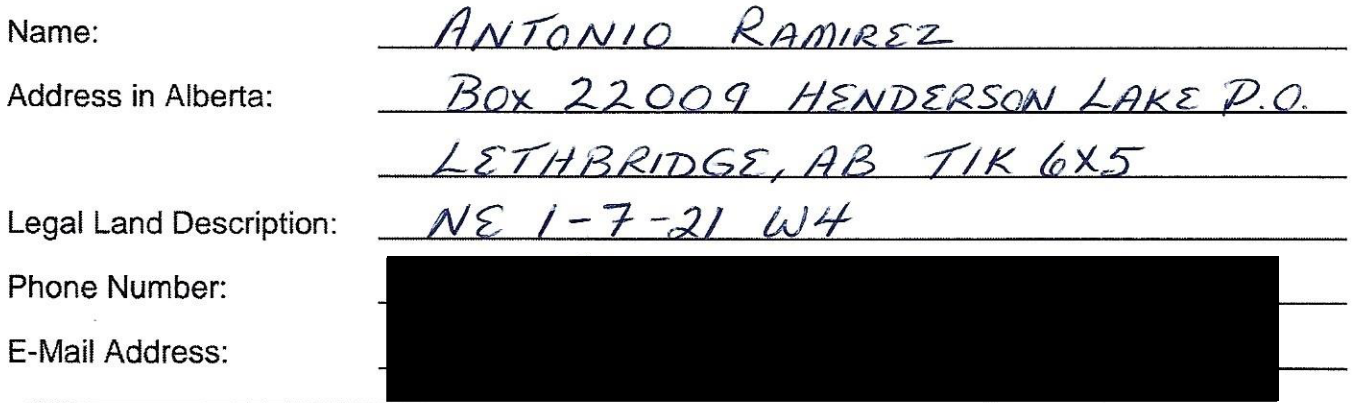 Name: ANTONIO RAMIREZ
Address in Alberta: BOX 22009 HENDERSON LAKE P.O.
LETHBRIDGE, AB T1K 6X5
Legal Land Description: NE 1-7-21 W4
Phone Number:
E-Mail Address: